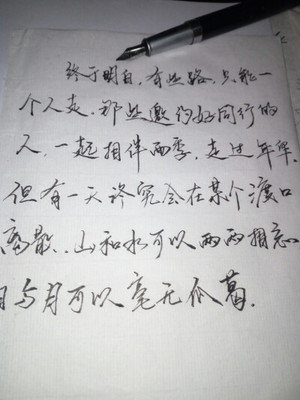 终于明白，有些路，只能一
个人走。那些邀约好同行的
人，一起相伴雨季，走过年华，
但有一天终究会在某个渡口
离散。山和水可以两两相忘
日与月可以毫无瓜葛。